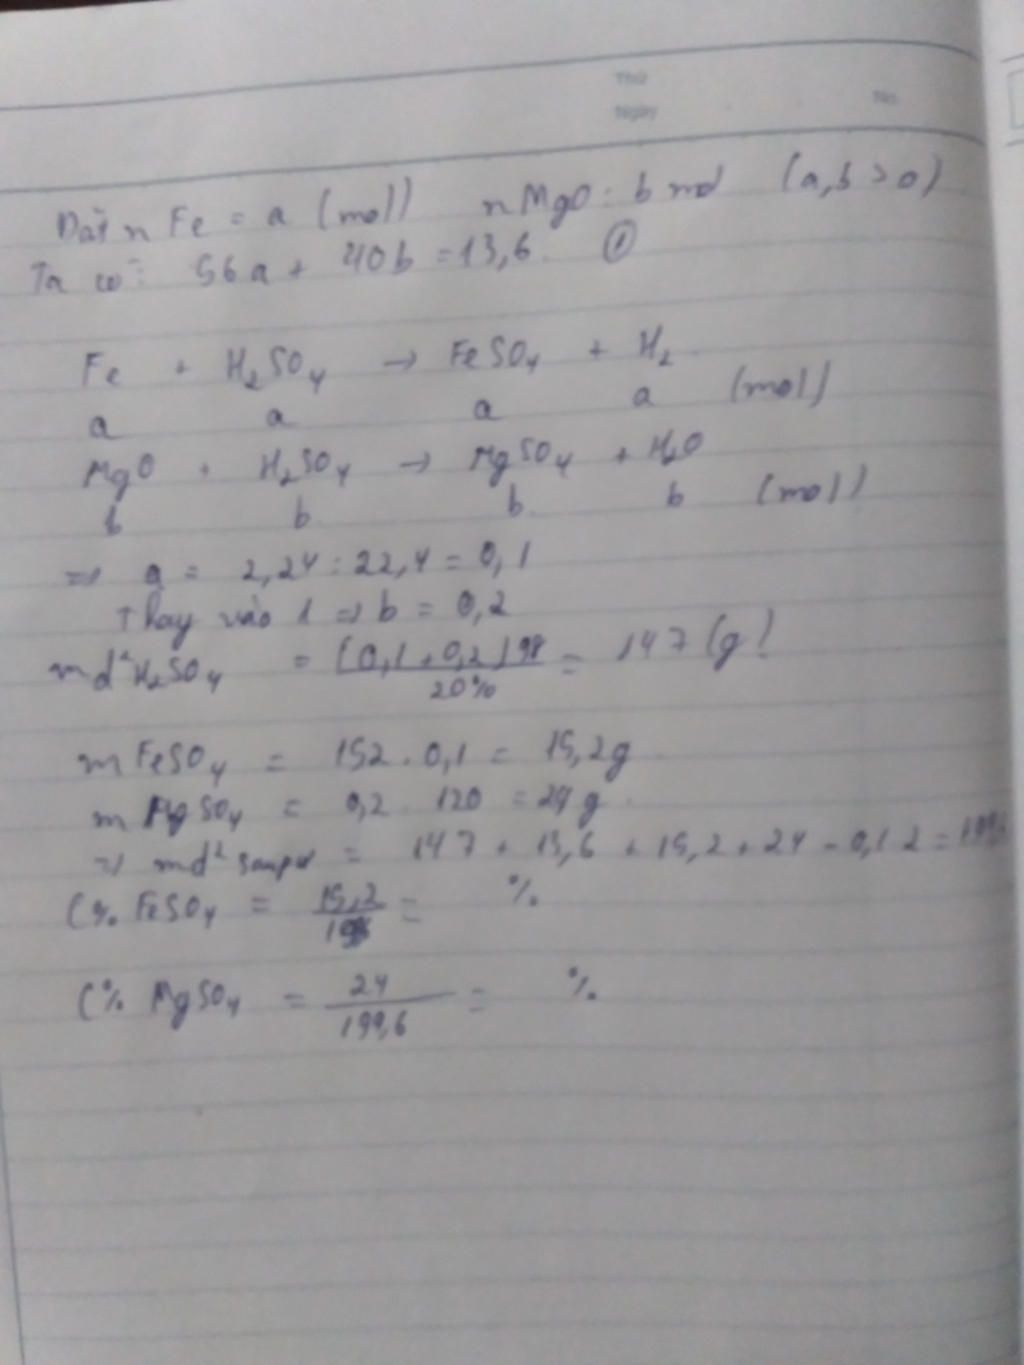 Thứ
Ngày No.
Đặt n Fe = a (mol) n MgO: b mol (a,b > 0)
Ta có: 56a + 40b = 13,6. ①
Fe + H₂SO₄ → FeSO₄ + H₂
a a a a (mol)
MgO + H₂SO₄ → MgSO₄ + H₂O
b b b b (mol)
=> a = 2,24 : 22,4 = 0,1
Thay vào 1 => b = 0,2
md² H₂SO₄ = (0,1 + 0,2) 98 / 20% = 147 (g)
m FeSO₄ = 152 . 0,1 = 15,2g
m MgSO₄ = 0,2 . 120 = 24 g.
=> md² = 147 + 13,6 + 15,2 + 24 - 0,1 2 =
C% FeSO₄ = 15,2 / = %
C% MgSO₄ = 24 / 199,6 = %